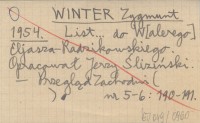 WINTER Zygmunt
1954. List... do W[alerego]
Eljasza-Radzikowskiego.
Opracował Jerzy Śliziński.
— Przegląd Zachodni (
) nr 5-6: 190-191.